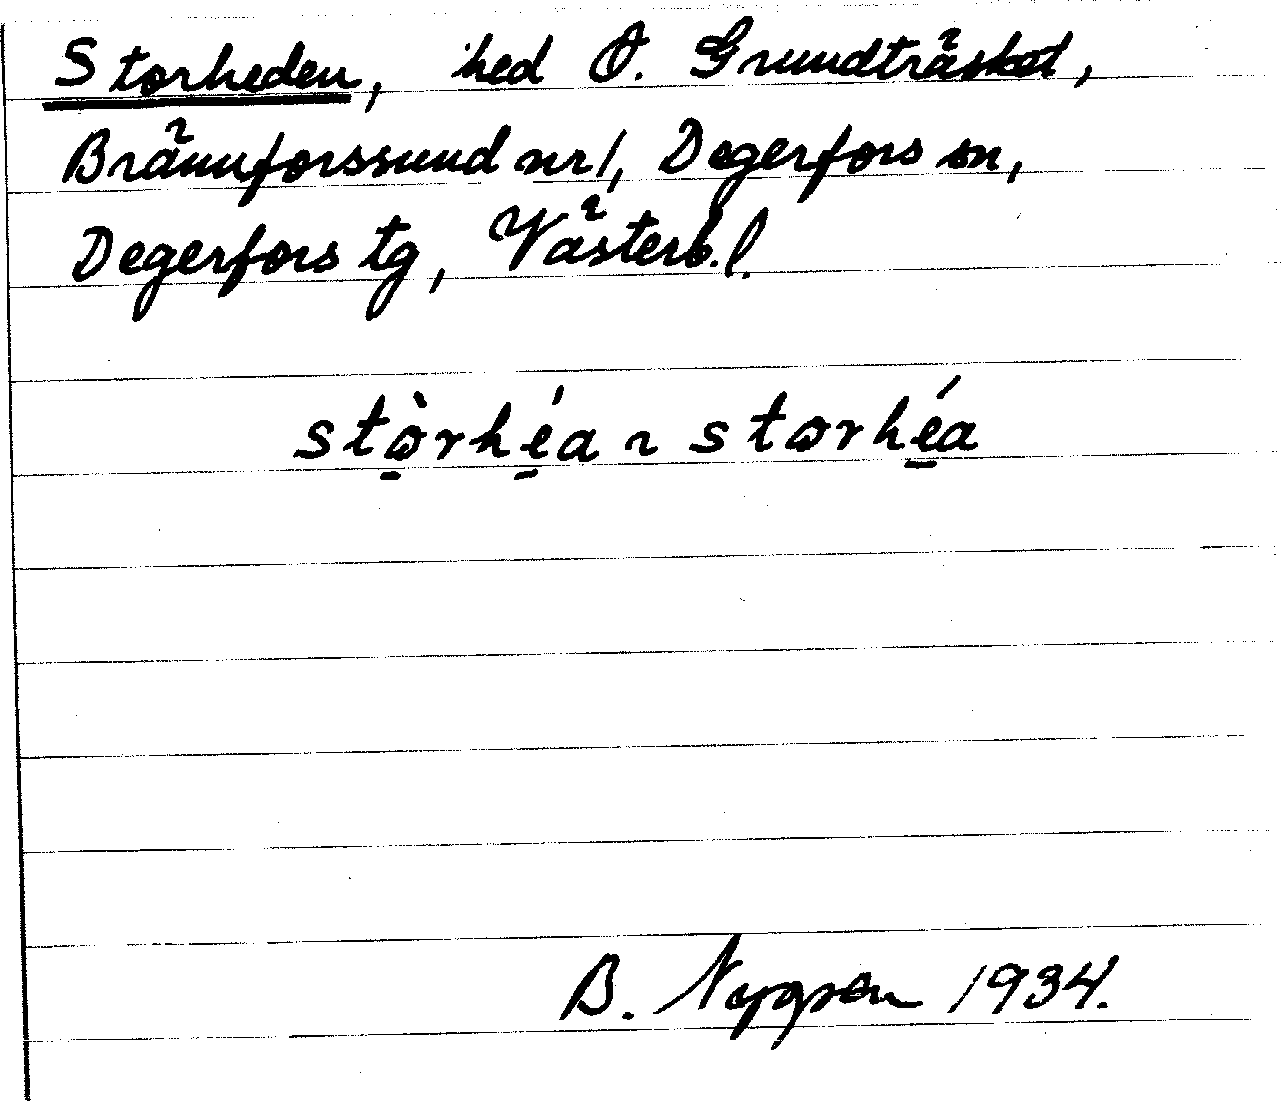 Storheden, hed O. Grundträsket,
Brännforssund nr 1, Degerfors sn,
Degerfors tg, Västerb. l.
stòrhéa ~ storhéa
B. Nygren 1934.